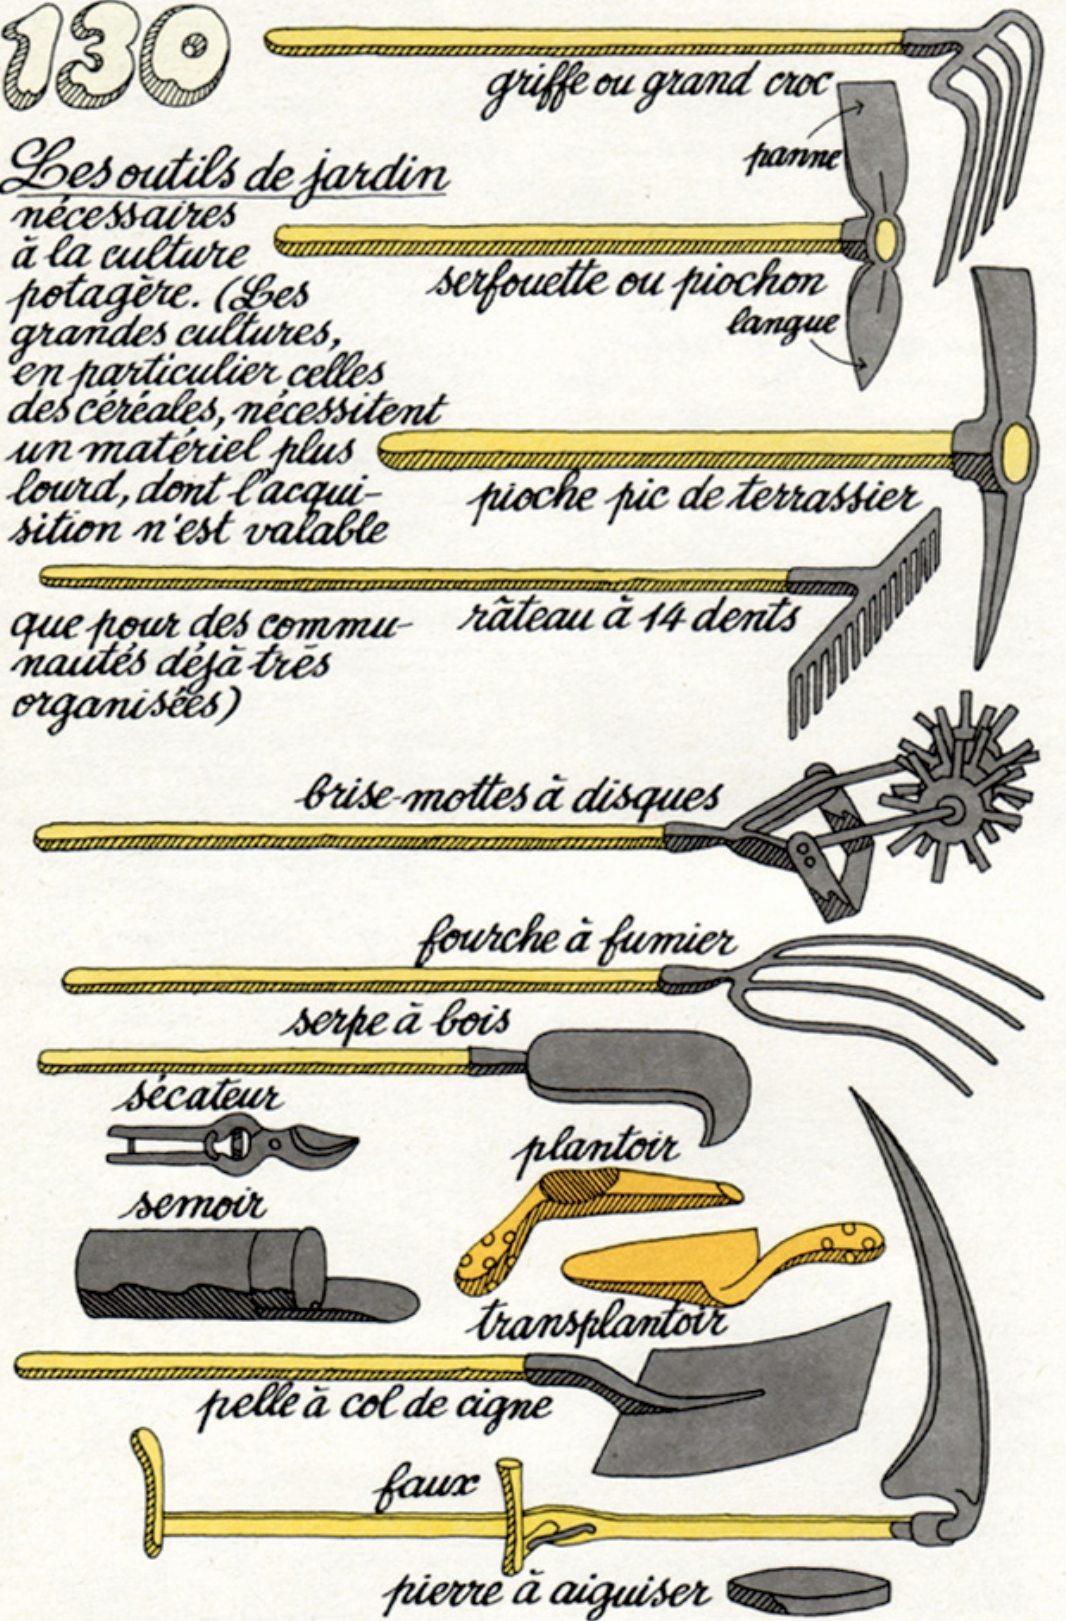 130
griffe ou grand croc
panne
Les outils de jardin
nécessaires
à la culture
potagère. (Les
grandes cultures,
en particulier celles
des céréales, nécessitent
un matériel plus
lourd, dont l'acqui-
sition n'est valable
que pour des commu-
nautés déjà très
organisées)
serfouette ou piochon
langue
pioche pic de terrassier
râteau à 14 dents
brise-mottes à disques
fourche à fumier
serpe à bois
sécateur
plantoir
semoir
transplantoir
pelle à col de cigne
faux
pierre à aiguiser